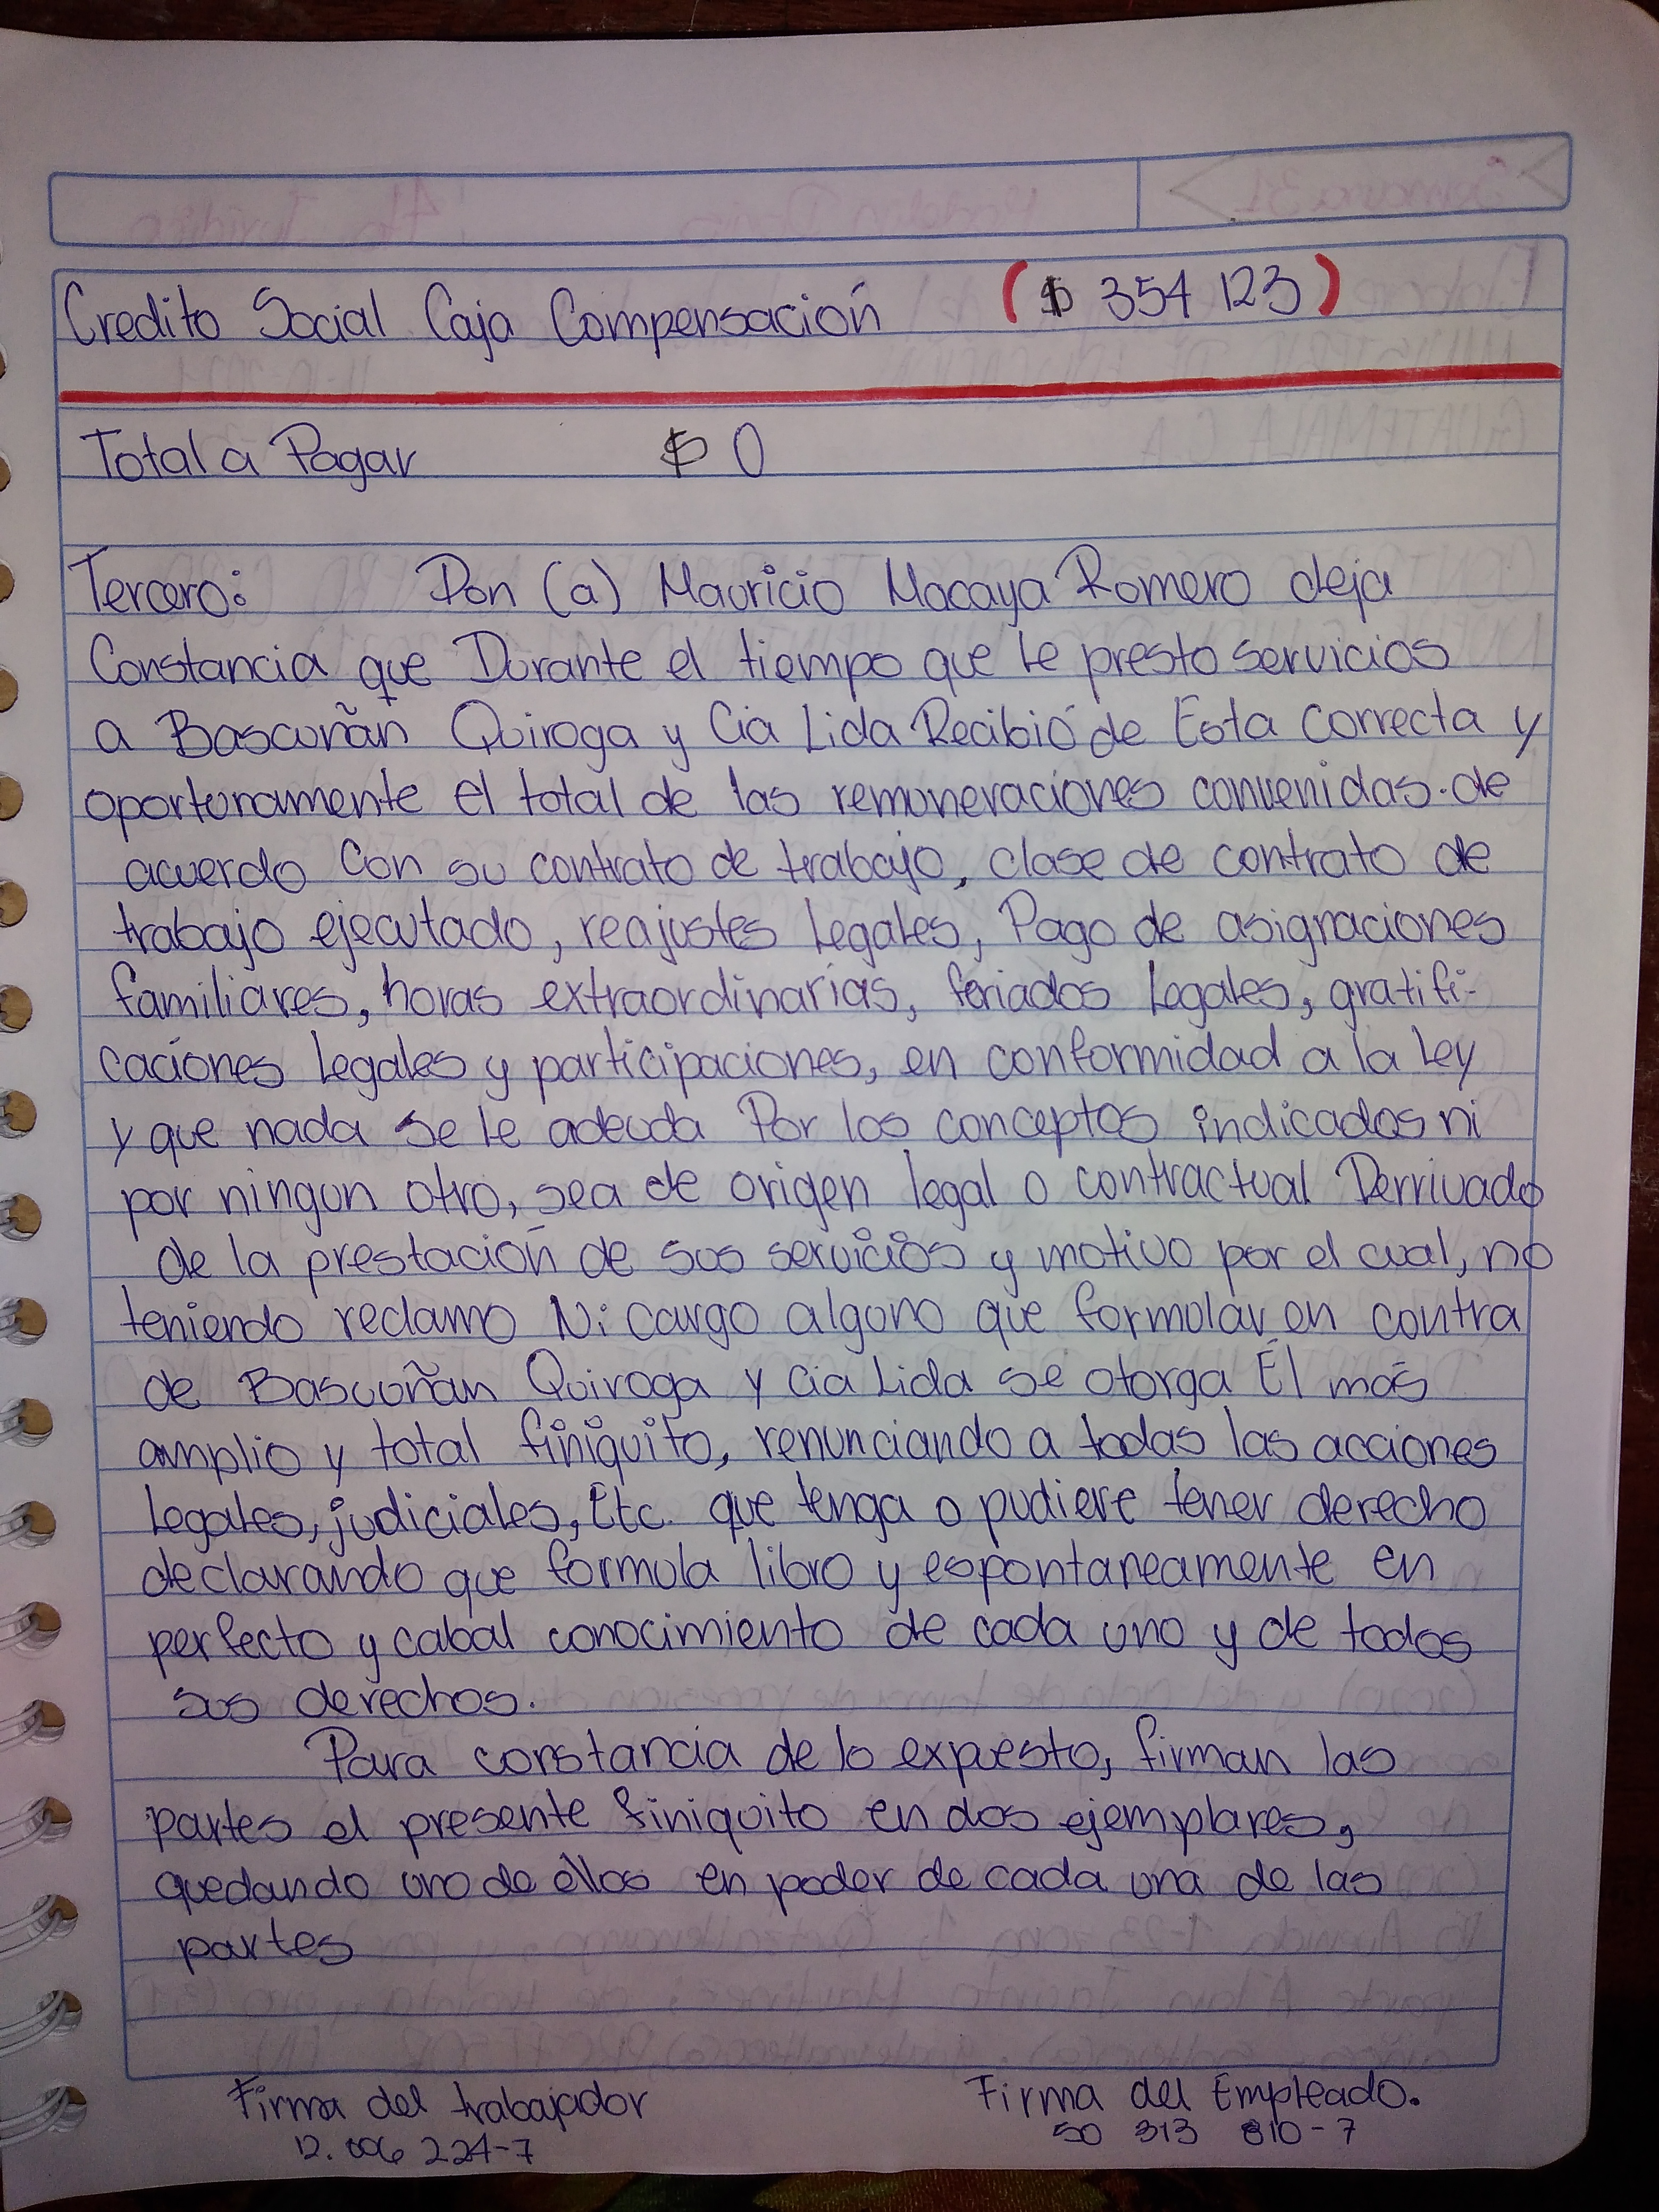 Credito Social Caja Compensación ($ 354 123)
Total a Pagar $ 0
Tercero: Don (a) Mauricio Macaya Romero deja
Constancia que Durante el tiempo que le presto servicios
a Bascuñan Quiroga y Cia Lida Recibió de Esta correcta y
oportunamente el total de las remuneraciones convenidas. de
acuerdo Con su contrato de trabajo, clase de contrato de
trabajo ejecutado, reajustes Legales, Pago de asignaciones
familiares, horas extraordinarias, feriados Legales, gratifi-
caciones Legales y participaciones, en conformidad a la Ley
y que nada se le adeuda Por los conceptos indicados ni
por ningun otro, sea de origen legal o contractual Derrivado
de la prestación de sus servicios y motivo por el cual, no
teniendo reclamo Ni cargo alguno que formular en contra
de Bascuñan Quiroga y Cia Lida se otorga El más
amplio y total finiquito, renunciando a todas las acciones
Legales, judiciales, Etc. que tenga o pudiere tener derecho
declarando que formula libro y espontaneamente en
perfecto y cabal conocimiento de cada uno y de todos
sus derechos.
Para constancia de lo expuesto, firman las
partes el presente finiquito en dos ejemplares,
quedando uno de ellos en poder de cada una de las
partes
Firma del trabajador Firma del Empleado.
12.006 224-7 50 313 810-7